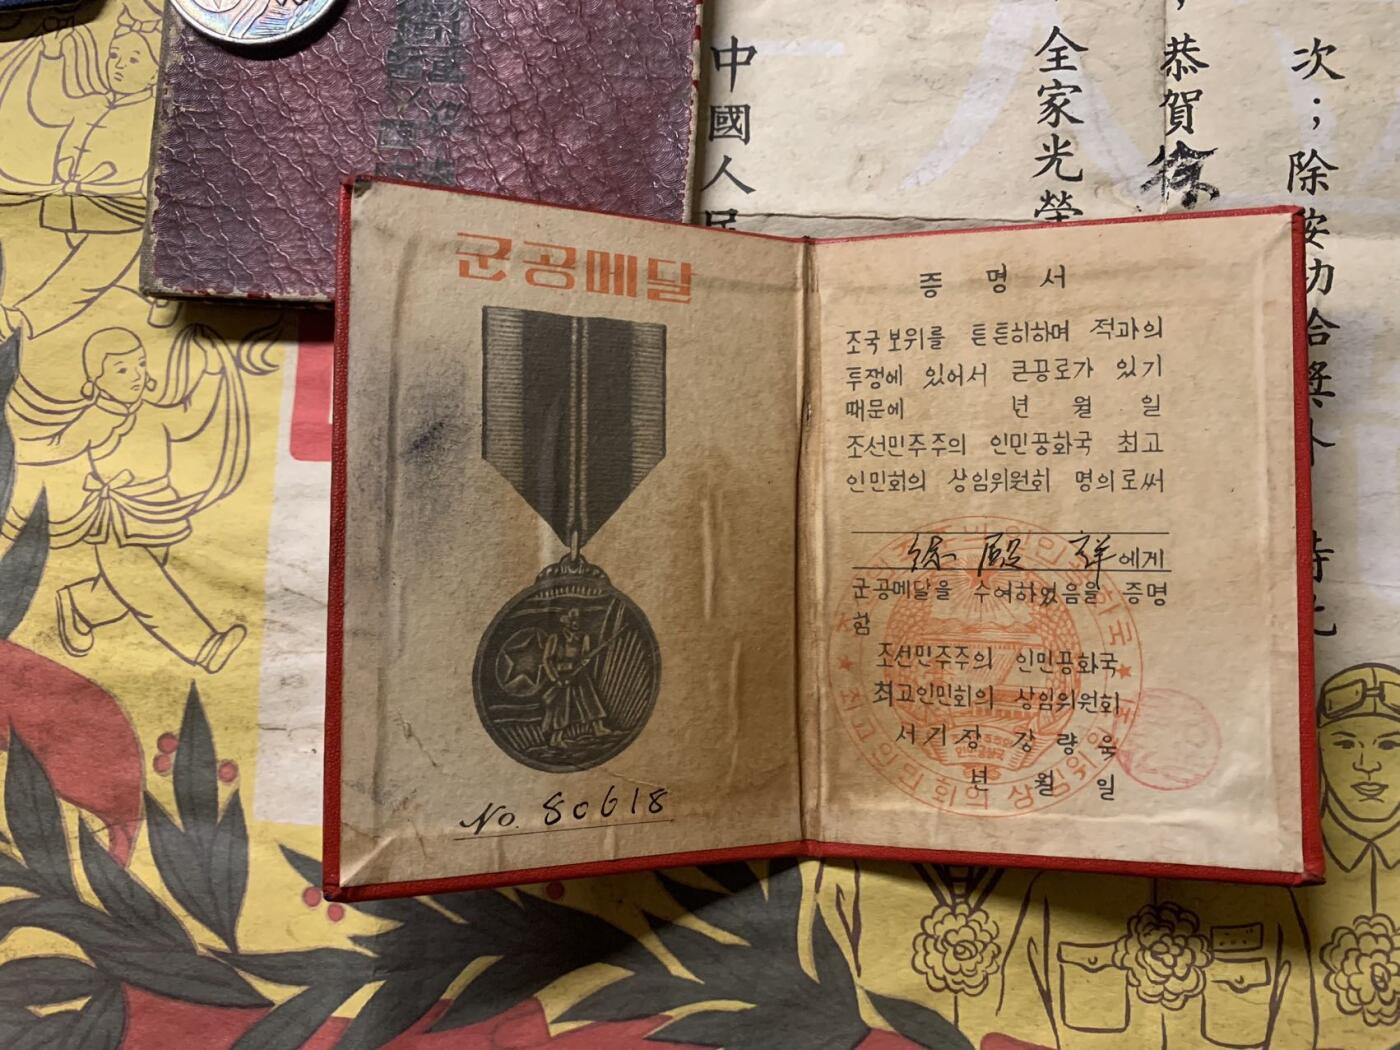 中國人民
全家光榮
恭賀徐
次；除按功給獎外
군공메달
No. 80618
증명서
조국 보위를 튼튼히하며 적과의
투쟁에 있어서 큰공로가 있기
때문에 년 월 일
조선민주주의 인민공화국 최고
인민회의 상임위원회 명의로써
徐殿祥에게
군공메달을 수여하였음을 증명
함
조선민주주의 인민공화국
최고인민회의 상임위원회
서기장 강량욱
년 월 일